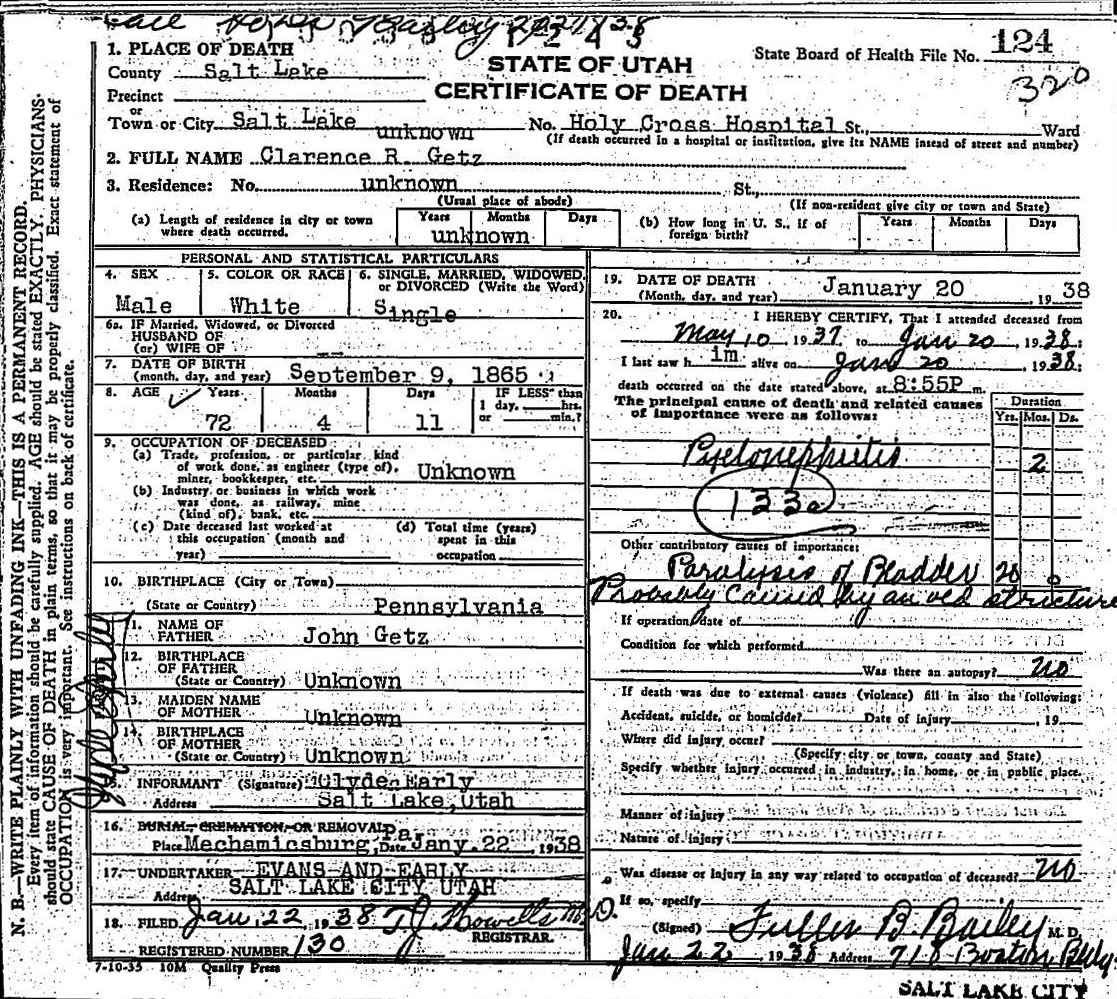 1. PLACE OF DEATH
County Salt Lake
Precinct
or
Town or City Salt Lake
unknown
STATE OF UTAH
CERTIFICATE OF DEATH
State Board of Health File No. 124
320
No. Holy Cross Hospital St., Ward
(If death occurred in a hospital or institution, give its NAME instead of street and number)
2. FULL NAME Clarence R. Getz
3. Residence: No. unknown St.,
(Usual place of abode)
(If non-resident give city or town and State)
(a) Length of residence in city or town where death occurred.
Years Months Days
unknown
(b) How long in U. S., if of foreign birth?
Years Months Days
PERSONAL AND STATISTICAL PARTICULARS
4. SEX
Male
5. COLOR OR RACE
White
6. SINGLE, MARRIED, WIDOWED, or DIVORCED (Write the Word)
Single
6a. IF Married, Widowed, or Divorced
HUSBAND OF
(or) WIFE OF --
7. DATE OF BIRTH
(month, day, and year) September 9, 1865
8. AGE Years Months Days IF LESS than
1 day, hrs.
or min.?
72 4 11
9. OCCUPATION OF DECEASED
(a) Trade, profession, or particular kind
of work done, as engineer (type of),
miner, bookkeeper, etc. Unknown
(b) Industry or business in which work
was done, as railway, mine
(kind of), bank, etc.
(c) Date deceased last worked at
this occupation (month and
year)
(d) Total time (years)
spent in this
occupation
10. BIRTHPLACE (City or Town)
(State or Country) Pennsylvania
11. NAME OF
FATHER John Getz
12. BIRTHPLACE
OF FATHER
(State or Country) Unknown
13. MAIDEN NAME
OF MOTHER Unknown
14. BIRTHPLACE
OF MOTHER
(State or Country) Unknown
15. INFORMANT (Signature) Clyde Early
Address Salt Lake, Utah
16. BURIAL, CREMATION, OR REMOVAL Pa.
Place Mechamicsburg, Date Jany. 22, 1938
17. UNDERTAKER EVANS AND EARLY
Address SALT LAKE CITY UTAH
18. FILED Jan. 22, 1938 T J Howells M.D.
REGISTRAR.
REGISTERED NUMBER 130
7-10-35 10M Quality Press
19. DATE OF DEATH
(Month, day, and year) January 20, 1938
20. I HEREBY CERTIFY, That I attended deceased from
May 10, 1937, to Jan 20, 1938;
I last saw h im alive on Jan 20, 1938;
death occurred on the date stated above, at 8:55P m.
The principal cause of death and related causes
of importance were as follows:
Duration
Yrs. Mos. Ds.
Pyelonephritis 2
133a
Other contributory causes of importance:
Paralysis of Bladder 20 0
Probably caused by an old stricture
If operation, date of
Condition for which performed
Was there an autopsy? no
If death was due to external causes (violence) fill in also the following:
Accident, suicide, or homicide? Date of injury , 19
Where did injury occur?
(Specify city or town, county and State)
Specify whether injury occurred in industry, in home, or in public place.
Manner of injury
Nature of injury
Was disease or injury in any way related to occupation of deceased? no
If so, specify
(Signed) Fuller B. Bailey M. D.
Jan 22, 1938 Address 718 Boston Bldg
SALT LAKE CITY
N. B.—WRITE PLAINLY WITH UNFADING INK—THIS IS A PERMANENT RECORD.
Every item of information should be carefully supplied. AGE should be stated EXACTLY. PHYSICIANS
should state CAUSE OF DEATH in plain terms, so that it may be properly classified. Exact statement of
OCCUPATION is very important. See instructions on back of certificate.